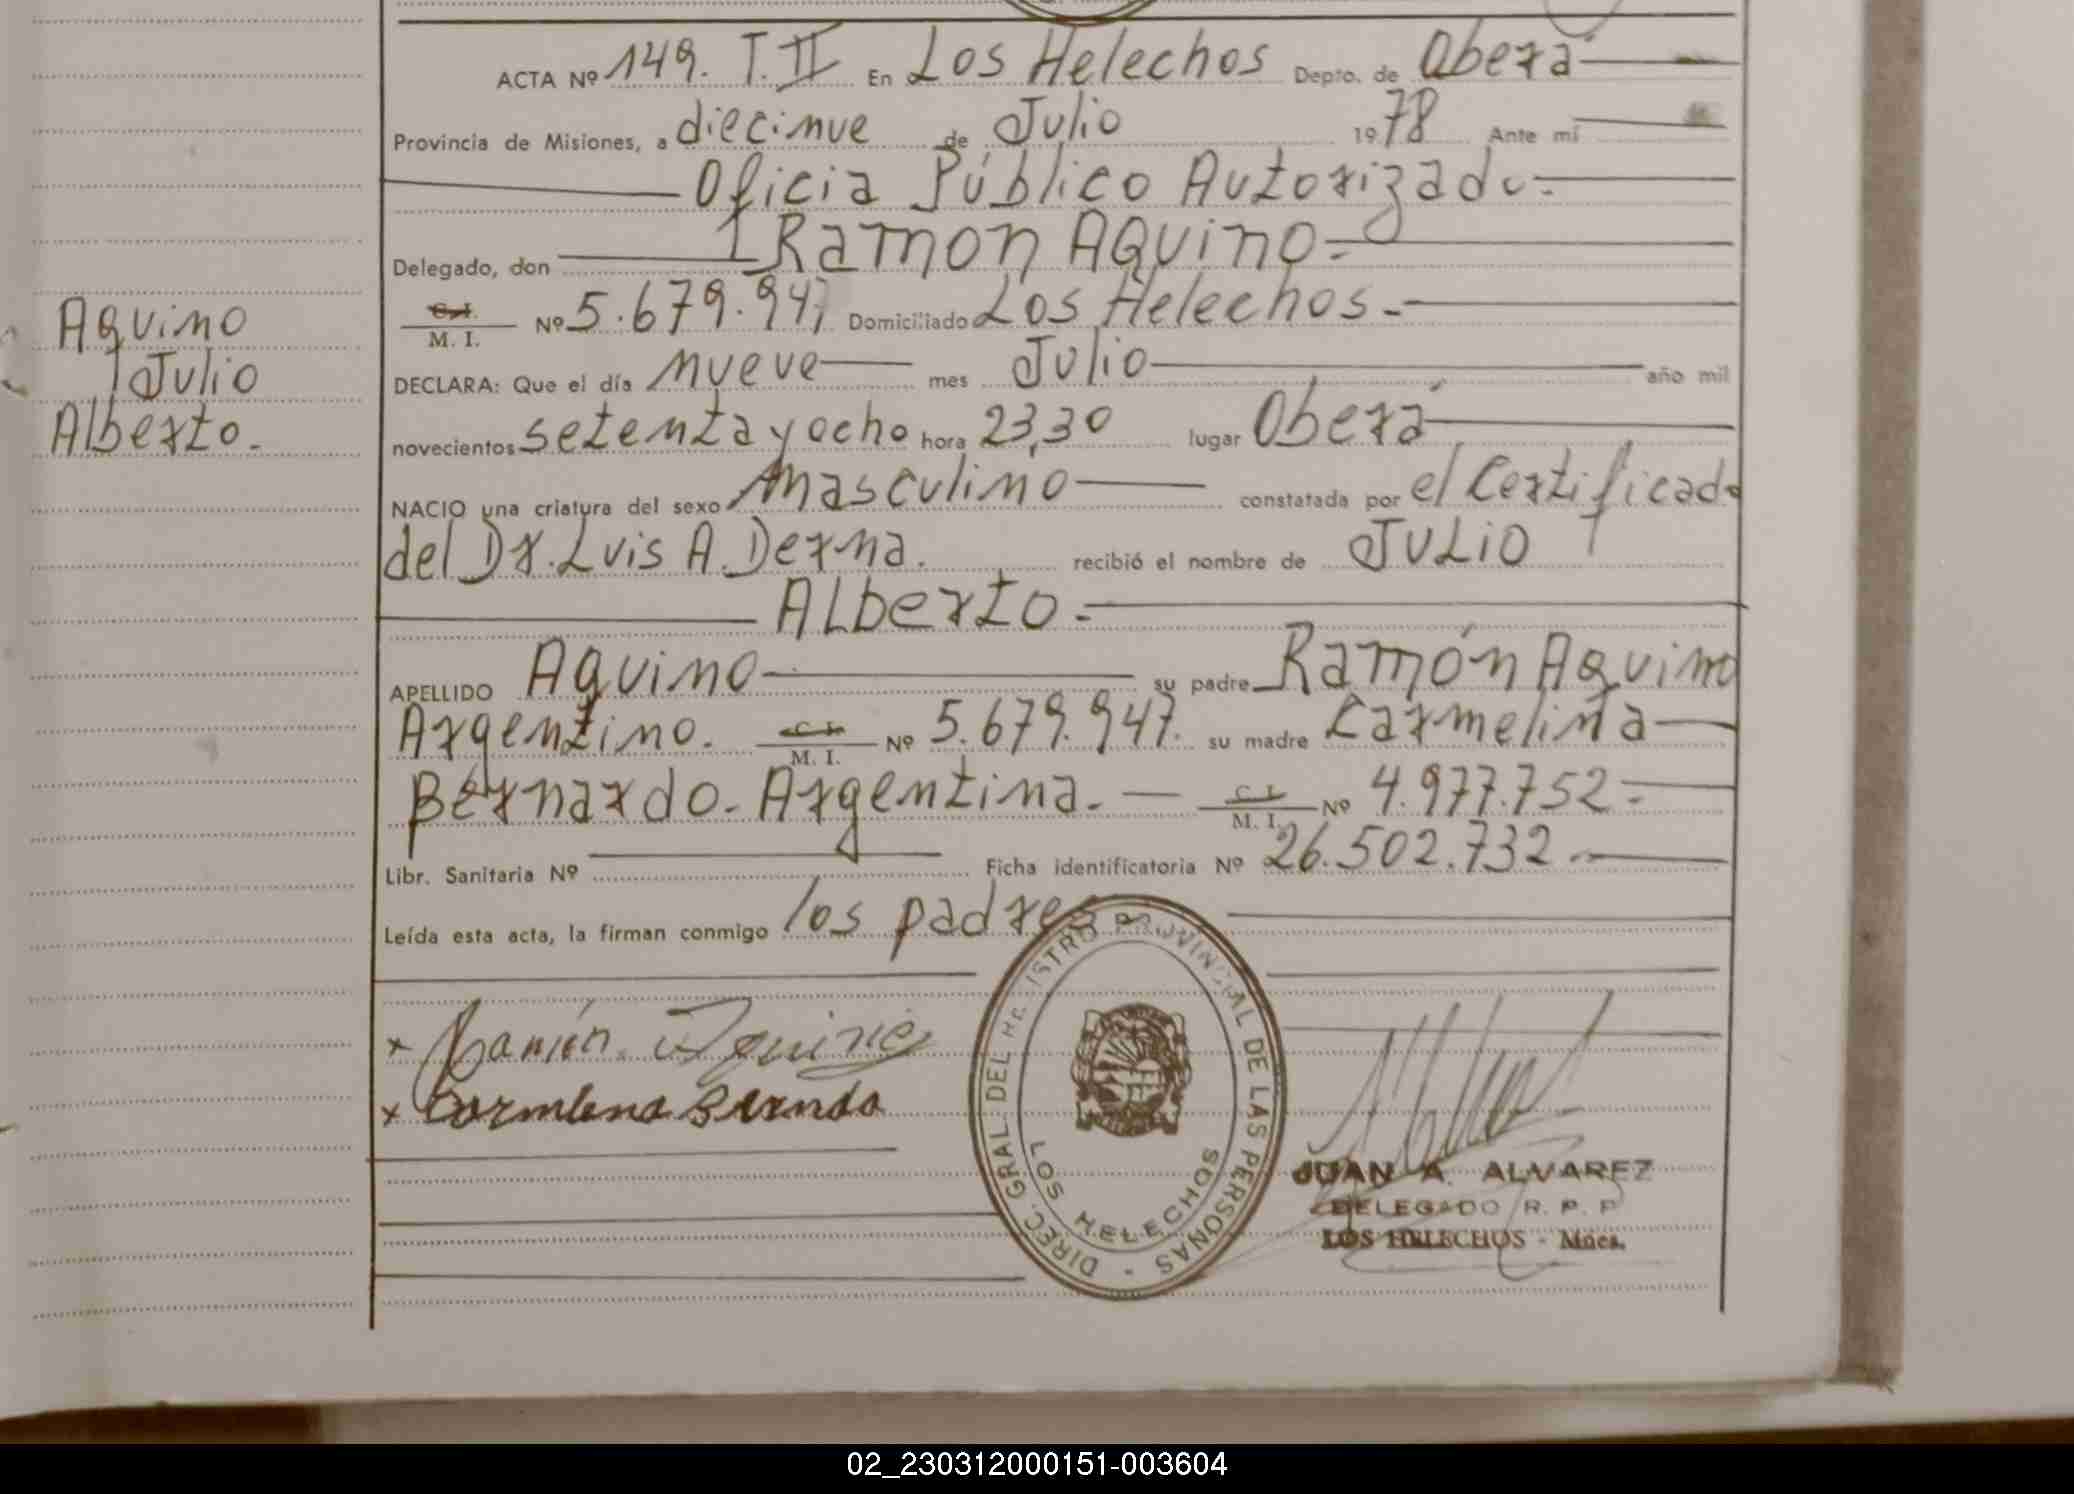 ACTA Nº 149. T. II En Los Helechos Depto. de Oberá
Provincia de Misiones, a diecinue de Julio 1978 Ante mí
Oficia Público Autorizado.
Delegado, don Ramon Aquino
C.I. M. I. Nº 5.679.947 Domiciliado Los Helechos.
Aquino
Julio
Alberto.
DECLARA: Que el día nueve mes Julio año mil
novecientos setenta y ocho hora 23,30 lugar Oberá
NACIO una criatura del sexo masculino constatada por el Certificado
del Dr. Luis A. Derna. recibió el nombre de JULIO
Alberto.
APELLIDO Aquino su padre Ramón Aquino
Argentino. C.I. M. I. Nº 5.679.947. su madre Carmelina
Bernardo. Argentina. C.I. M. I. Nº 4.977.752
Libr. Sanitaria Nº Ficha identificatoria Nº 26.502.732
Leída esta acta, la firman conmigo los padres
x Ramón Aquino
x
DIREC. GRAL. DEL REGISTRO PROVINCIAL DE LAS PERSONAS -
LOS HELECHOS
JUAN A. ALVAREZ
DELEGADO R. P. P
LOS HELECHOS - Mnes.
02_230312000151-003604